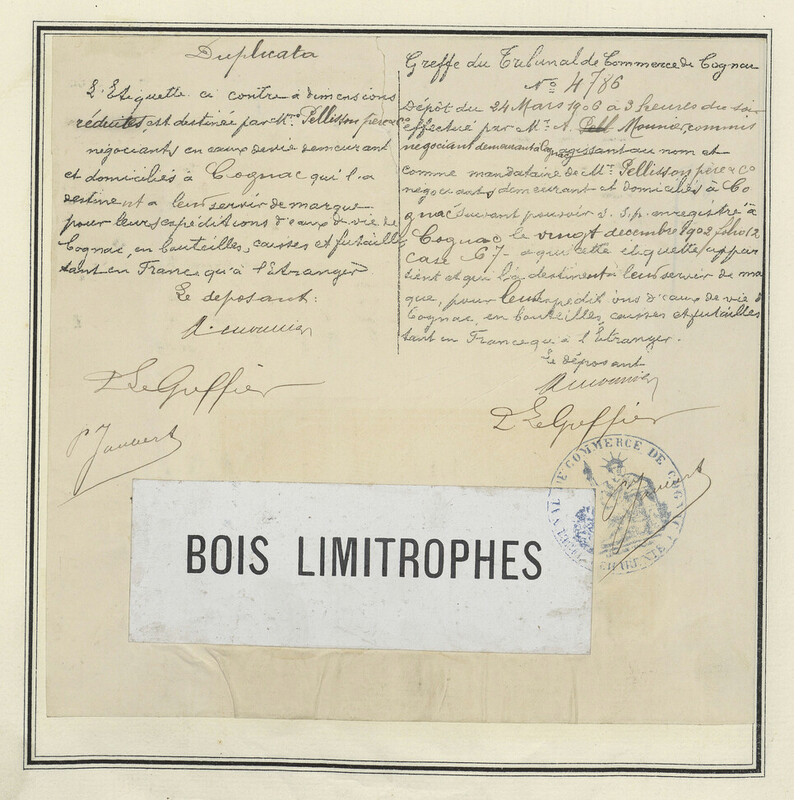 Duplicata
L'Etiquette ci contre à dimensions
réduites, est destinée par Mrs. Pellisson père & Co
négociants en eaux de vie demeurant
et domiciliés à Cognac qui l'a
destinent à leur servir de marque
pour leurs expéditions d'eaux de vie de
Cognac, en bouteilles, caisses et futailles
tant en France qu'à l'Etranger
Le déposant:
A. Mounier
D Le Greffier
P Jaubert
Greffe du Tribunal de Commerce de Cognac
No 4786
Dépôt du 24 Mars 1906 à 3 heures du soir
effectué par Mr. A. Mounier, commis
négociant demeurant à Cognac agissant au nom et
comme mandataire de Mrs. Pellisson père & Co
négociants demeurant et domiciliés à Co
gnac suivant pouvoir s. s.p. enregistré à
Cognac le vingt decembre 1902 folio 12
case 67 - a qui cette étiquette appar
tient et qui l'a destinent à leur servir de mar
que, pour leur expéditions d'eaux de vie de
Cognac, en bouteilles, caisses et futailles
tant en France qu'à l'Etranger.
Le déposant
A Mounier
D Le Greffier
P Jaubert
TRIBUNAL DE COMMERCE DE COGNAC
CHARENTE
BOIS LIMITROPHES